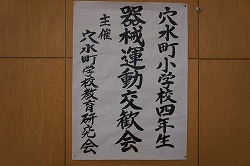 穴水町小学校四年生
器械運動交歓会
主催
穴水町学校教育研究会